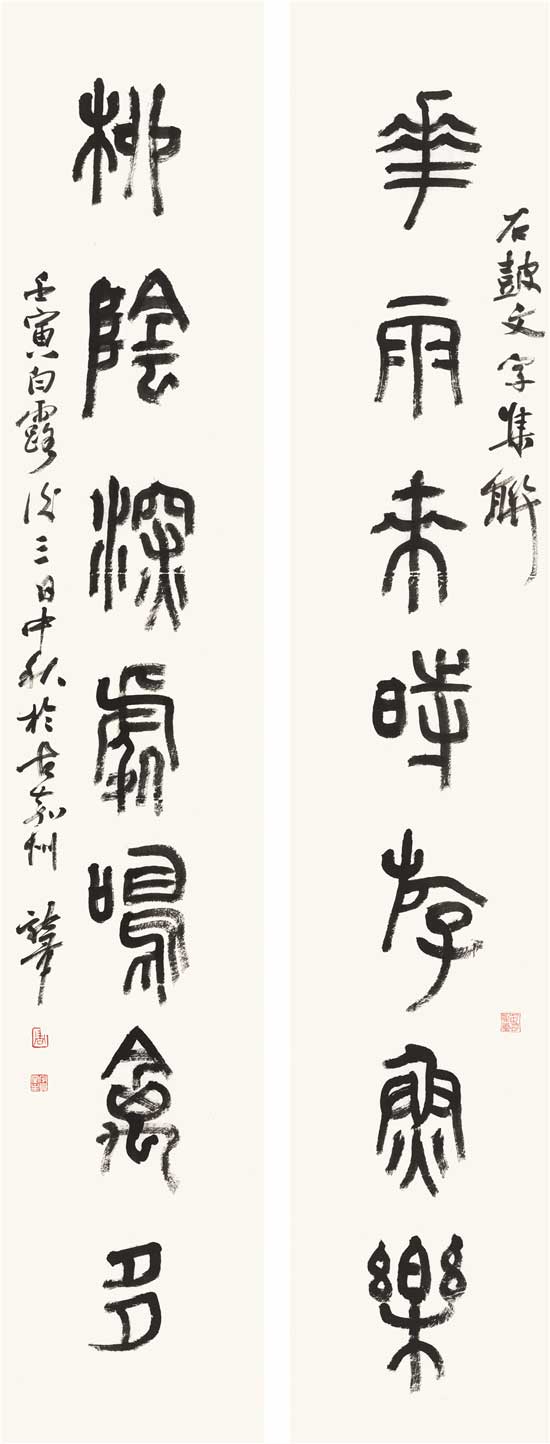 石皷文字集聯
華雨來時斿魚樂
柳陰深處鳴禽多
壬寅白露後三日中秋於古嘉州